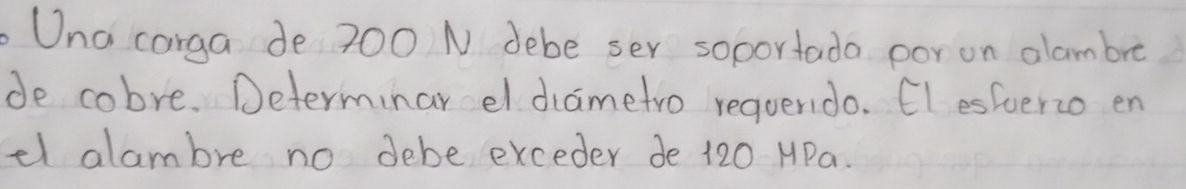 Una carga de 700 N debe ser soportada por un alambre
de cobre. Determinar el diámetro requerido. El esfuerzo en
el alambre no debe exceder de 120 MPa.